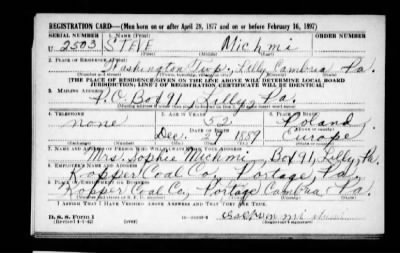 REGISTRATION CARD—(Men born on or after April 28, 1877 and on or before February 16, 1897)
SERIAL NUMBER 1. NAME (Print) ORDER NUMBER
U 2503 STEVE Michmi
(First) (Middle) (Last)
2. PLACE OF RESIDENCE (Print)
Washington Twp. Lilly Cambria Pa.
(Number and street) (Town, township, village, or city) (County) (State)
[THE PLACE OF RESIDENCE GIVEN ON THE LINE ABOVE WILL DETERMINE LOCAL BOARD
JURISDICTION; LINE 2 OF REGISTRATION CERTIFICATE WILL BE IDENTICAL]
3. MAILING ADDRESS
P.O. Box 91, Lilly, Pa.
4. TELEPHONE 5. AGE IN YEARS 6. PLACE OF BIRTH
none 52 Poland
DATE OF BIRTH
Dec. 27 1889 Europe
7. NAME AND ADDRESS OF PERSON WHO WILL ALWAYS KNOW YOUR ADDRESS
Mrs. Sophie Michmi, Box 91, Lilly, Pa.
8. EMPLOYER'S NAME AND ADDRESS
Kopper Coal Co., Portage, Pa.
9. PLACE OF EMPLOYMENT OR BUSINESS
Kopper Coal Co., Portage Cambria Pa.
I AFFIRM THAT I HAVE VERIFIED ABOVE ANSWERS AND THAT THEY ARE TRUE.
D. S. S. Form 1
(Revised 4-1-42) (over)